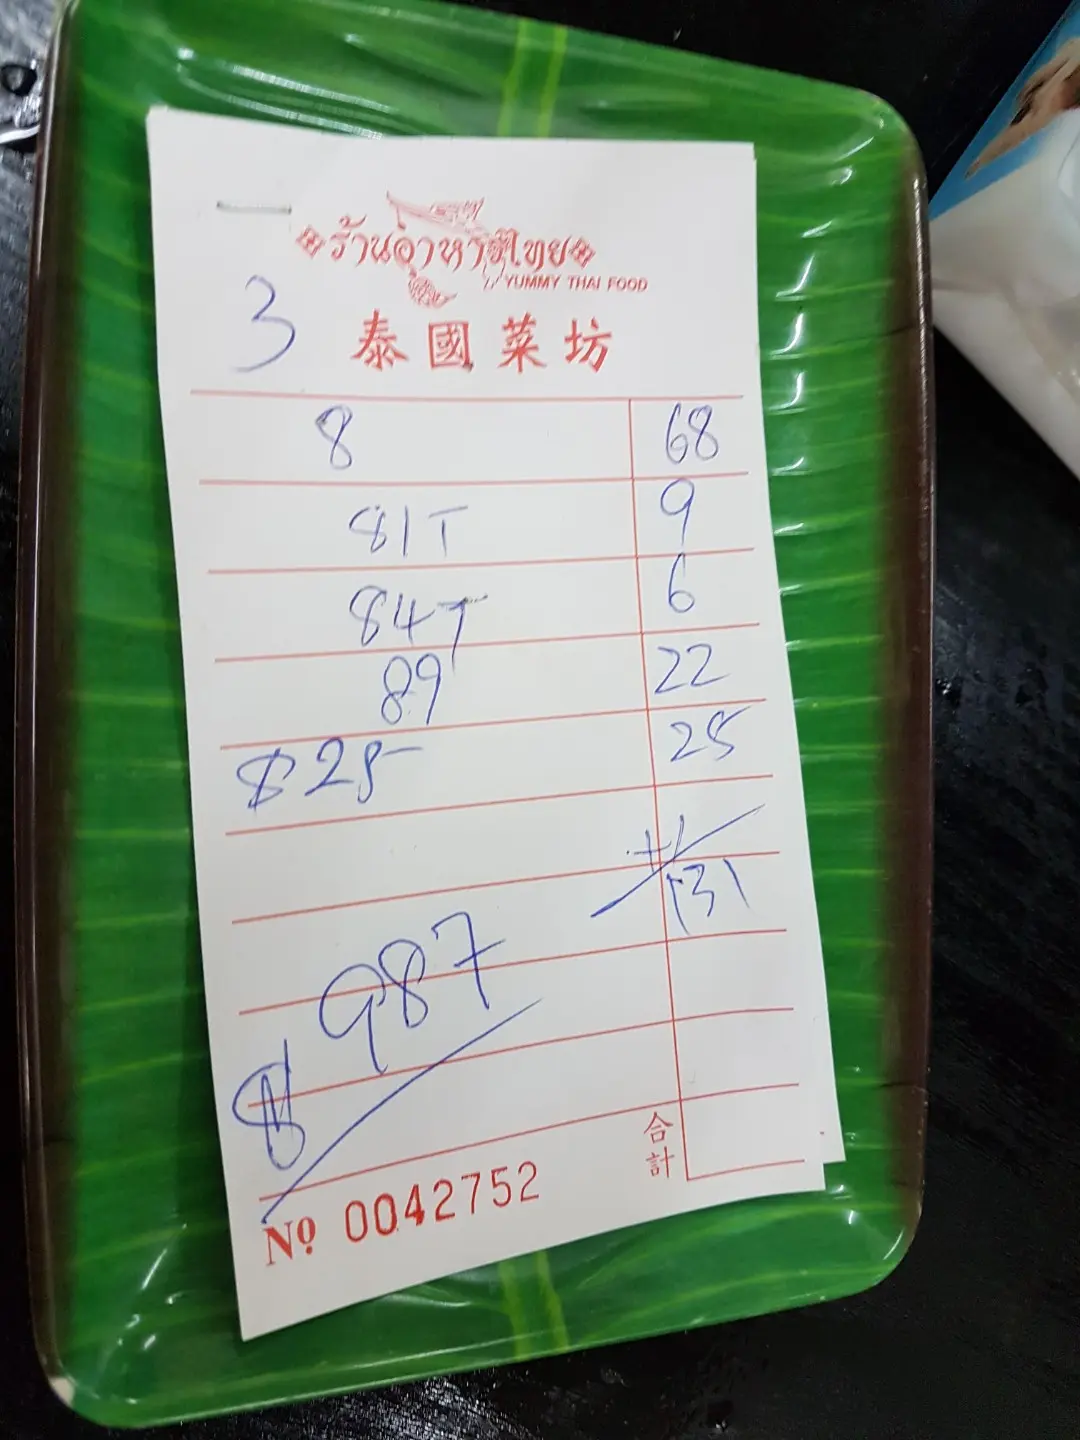 ร้านอาหารไทย
YUMMY THAI FOOD
3
泰國菜坊
8 68
81T 9
84T 6
89 22
$25 25
131
$987
合計
Nº 0042752